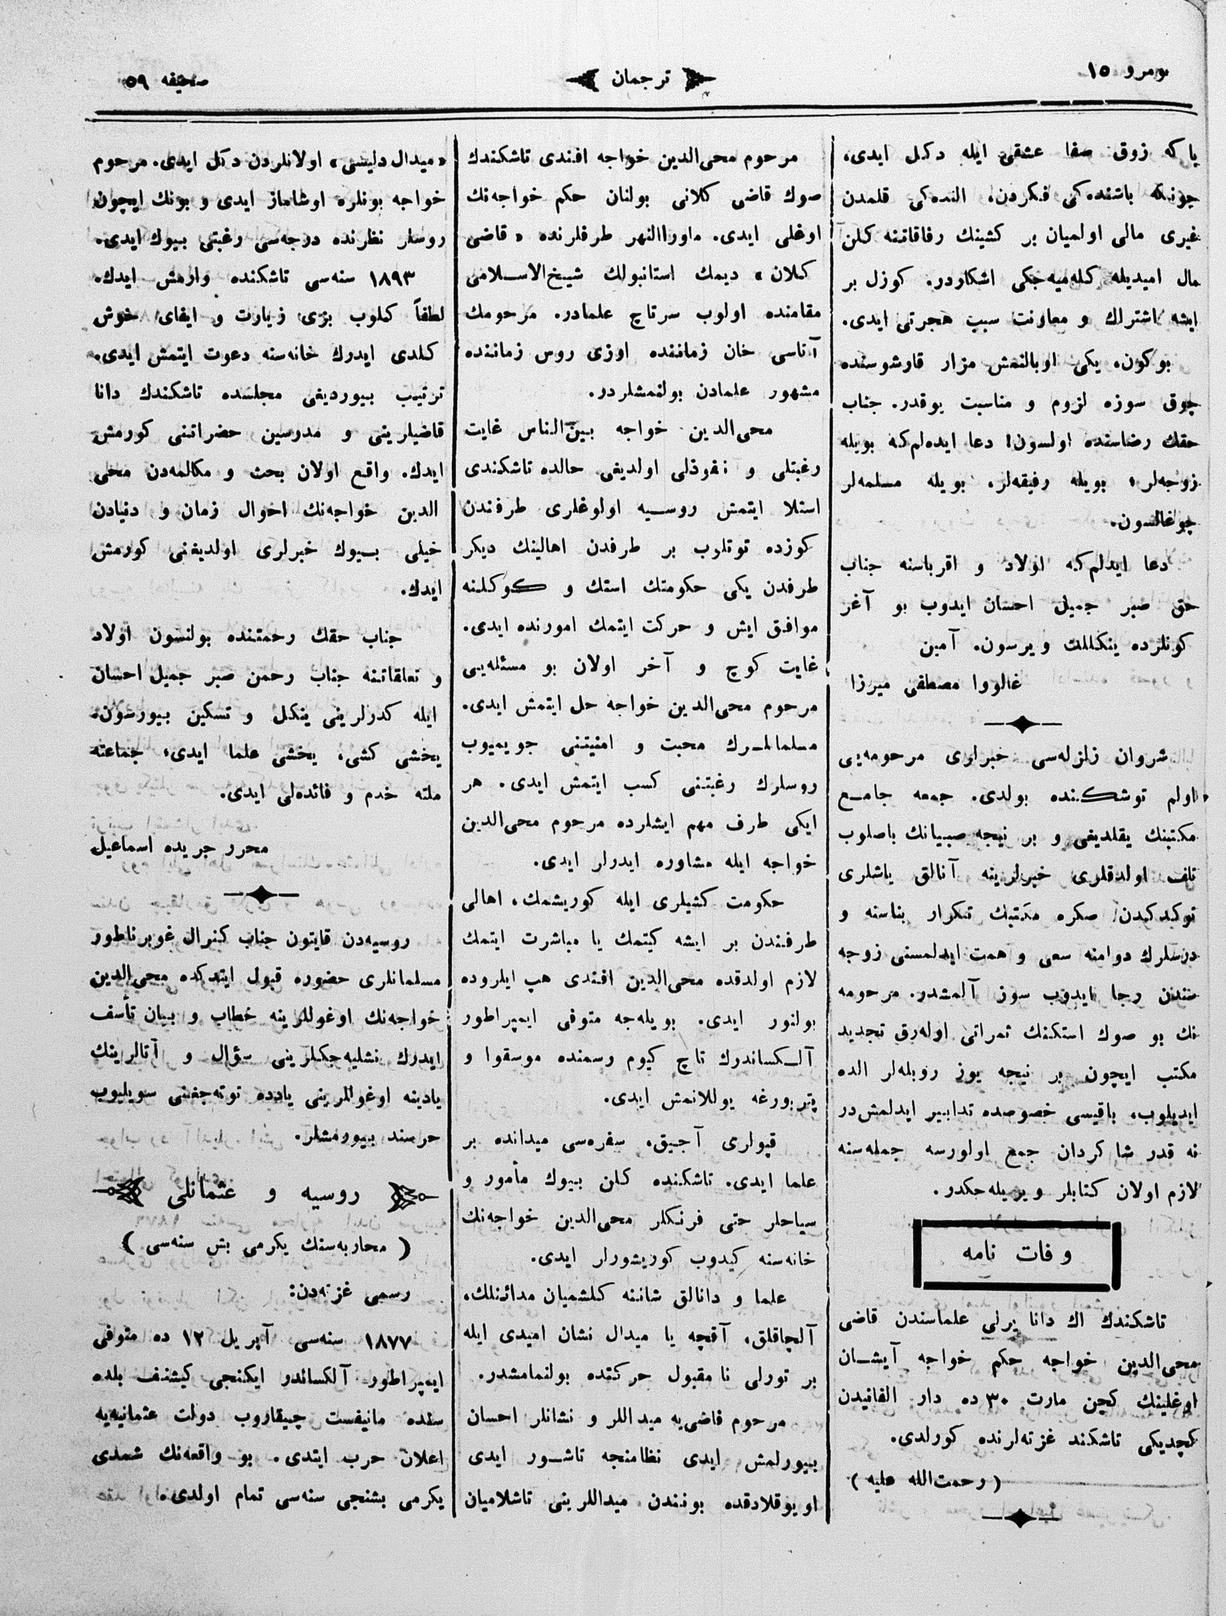 نومرو ١٥
ترجمان
صحیفه ٥٩
یا که زوق صفا عشقی ایله دکل ایدی،
چونکه باشنده کی فکردن، النده کی قلمدن
غیری مالی اولمیان بر کشینك رفاقاتنه کلن
مال امیدیله کله میه جکی اشکاردر. کوزل بر
ایشه اشتراك و معاونت سبب هجرتی ایدی.
بوکون، یکی اوبالنمش مزار قاوشوسنده
چوق سوزه لزوم و مناسبت یوقدر. جناب
حقك رضاسنده اولسون! دعا ایده لم که بویله
زوجه لر، بویله رفیقه لر، بویله مسلمه لر
چوغالسون.
دعا ایدلم که اولاد و اقرباسنه جناب
حق صبر جمیل احسان ایدوب بو آغر
کونلرده ینکللك ویرسون. آمین
غالووا مصطفی میرزا
شروان زلزله سی خبرلری مرحومه یی
اولم توشکنده بولدی. جمعه جامع
مکتبنك یقلدیغی و بر نیجه صبیانك باصلوب
تلف اولدقلری خبرلرینه آنالق یاشلری
توکدکدن صکره مکتبك تکرار بناسنه و
درسلرك دوامنه سعی و همت ایدلمسنی زوجه
سندن رجا ایدوب سوز آلمشدر. مرحومه
نك بو صوك استکنك ثمراتی اوله رق تجدید
مکتب ایچون بر نیجه یوز روبله لر الده
ایدیلوب، باقیسی خصوصده تدابیر ایدلمش در
نه قدر شاکردان جمع اولورسه جمله سنه
لازم اولان کتابلر ویریله جکدر.
وفات نامه
تاشکندك اك دانا پرلی علماسندن قاضی
محی الدین خواجه حکم خواجه آیشان
اوغلینك کچن مارت ٣٠ ده دار الفانیدن
کچدیکی تاشکند غزته لرنده کورلدی.
( رحمت الله علیه )
مرحوم محی الدین خواجه افندی تاشکندك
صوك قاضی کلانی بولنان حکم خواجه نك
اوغلی ایدی. ماوراالنهر طرفلرنده « قاضی
کلان » دیمك استانبولك شیخ الاسلامی
مقامنده اولوب سرتاج علمادر. مرحومك
آتاسی خان زماننده اوزی روس زماننده
مشهور علمادن بولنمشلردر.
محی الدین خواجه بین الناس غایت
رغبتلی و نفوذلی اولدیغی حالده تاشکندی
استلا ایتمش روسیه اولوغلری طرفندن
کوزده توتلوب بر طرفدن اهالینك دیکر
طرفدن یکی حکومتك استك و کوکلنه
موافق ایش و حرکت ایتمك امورنده ایدی.
غایت کوچ و آخر اولان بو مسئله یی
مرحوم محی الدین خواجه حل ایتمش ایدی.
مسلمانلرك محبت و امنیتنی جویمیوب
روسلرك رغبتنی کسب ایتمش ایدی. هر
ایکی طرف مهم ایشلرده مرحوم محی الدین
خواجه ایله مشاوره ایدرلر ایدی.
حکومت کشیلری ایله کوریشمك، اهالی
طرفندن بر ایشه کیتمك یا مباشرت ایتمك
لازم اولدقده محی الدین افندی هپ ایلروده
بولنور ایدی. بویله جه متوفی ایمپراطور
آلکساندرك تاج کیوم رسمنده موسقوا و
پتربورغه یوللانمش ایدی.
قپولری آجیق، سفره سی میدانده بر
علما ایدی. تاشکنده کلن بیوك مأمور و
سیاحلر حتی فرنکلر محی الدین خواجه نك
خانه سنه کیدوب کوریشورلر ایدی.
علما و دانالق شاننه کلشمیان مداننلك،
آلچاقلق، آقچه یا میدال نشان امیدی ایله
بر تورلی نا مقبول حرکتده بولنمامشدر.
مرحوم قاضی یه میداللر و نشانلر احسان
بیورلمش ایدی نظامنجه تاشور ایدی
اویوقلادقده بونندن میداللرینی تاشلامیان
«میدال دلیسی» اولانلردن دکل ایدی. مرحوم
خواجه بونلره اوشاماز ایدی و بونك ایچون
روسلر نظرنده درجه سی رغبتی بیوك ایدی.
١٨٩٣ سنه سی تاشکنده وارمش ایدك.
لطفاً کلوب بزی زیارت و ایفای خوش
کلدی ایدرك خانه سنه دعوت ایتمش ایدی.
ترتیب بیوردیغی مجلسده تاشکندك دانا
قاضیلرینی و مدرسین حضراتنی کورمش
ایدك. واقع اولان بحث و مکالمه دن محی
الدین خواجه نك احوال زمان و دنیادن
خیلی بیوك خبرلری اولدیغنی کورمش
ایدك.
جناب حقك رحمتنده بولنسون اولاد
و تعلقاتنه جناب رحمن صبر جمیل احسان
ایله کدرلرینی ینکل و تسکین بیورسون.
یخشی کشی، یخشی علما ایدی، جماعته
ملته خدم و فائده لی ایدی.
محرر جریده اسماعیل
روسیه دن قایتون جناب کنرال غوبرناطور
مسلمانلری حضوره قبول ایتدکده محی الدین
خواجه نك اوغوللرینه خطاب و بیان تأسف
ایدرك نشلیه جکلرینی سؤال و آتالرینك
یادینه اوغوللرینی یادده توته جغنی سویلیوب
حرسند بیورمشلر.
روسیه و عثمانلی
( محاربه سنك یکرمی بش سنه سی )
رسمی غزته دن:
١٨٧٧ سنه سی آپریل ١٢ ده متوفی
ایمپراطور آلکساندر ایکنجی کیشنف بلده
سنده مانیفست چیقاروب دولت عثمانیه یه
اعلان حرب ایتدی. بو واقعه نك شمدی
یکرمی بشنجی سنه سی تمام اولدی.